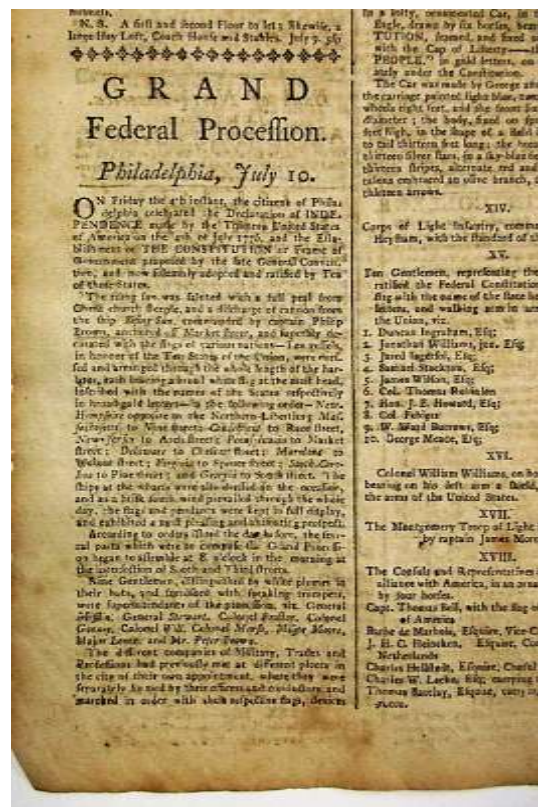 N. B. A first and second Floor to let; likewise, a
large Hay Loft, Coach House and Stables. July 9.
GRAND
Federal Procession.
Philadelphia, July 10.
ON Friday the 4th instant, the citizens of Phila
delphia celebrated the Declaration of INDE-
PENDENCE made by the Thirteen United States
of America on the 4th of July 1776, and the Esta-
blishment of THE CONSTITUTION or Frame of
Government proposed by the late General Conven-
tion, and now solemnly adopted and ratified by Ten
of those States.
The rising sun was saluted with a full peal from
Christ church steeple, and a discharge of cannon from
the ship Rising Sun, commanded by captain Philip
Brown, anchored off Market street, and superbly de-
corated with the flags of various nations—Ten vessels,
in honour of the Ten States of the Union, were dres-
sed and arranged through the whole length of the har-
bour, each bearing a broad white flag at the mast head,
inscribed with the names of the States respectively
in broad gold letters—in the following order—New-
Hampshire opposite to the Northern-Liberties; Mas-
sachusetts to Vine street; Connecticut to Race street,
New-Jersey to Arch street; Pennsylvania to Market
street; Delaware to Chesnut street; Maryland to
Walnut street; Virginia to Spruce street; South-Caro-
lina to Pine street; and Georgia to South street. The
ships at the wharfs were also dressed on the occasion,
and as a brisk south wind prevailed through the whole
day, the flags and pendants were kept in full display,
and exhibited a most pleasing and animating prospect.
According to orders issued the day before, the seve-
ral parts which were to compose the Grand Processi-
on began to assemble at 8 o'clock in the morning at
the intersection of South and Third streets.
Nine Gentlemen, distinguished by white plumes in
their hats, and furnished with speaking trumpets,
were superintendants of the procession, viz. General
Mifflin, General Stewart, Colonel Proctor, Colonel
Gurney, Colonel Will, Colonel Marsh, Major Moore,
Major Lenox and Mr. Peter Brown.
The different companies of Military, Trades and
Professions had previously met at different places in
the city of their own appointment, where they were
separately formed by their officers and conductors and
marched in order with their respective flags, devices
in a lofty, ornamented Car, in
Eagle, drawn by six horses,
TUTION, framed, and fixed
with the Cap of Liberty
PEOPLE," in gold letters, on
ately under the Constitution.
The Car was made by George
the carriage painted light blue,
wheels eight feet, and the front
diameter; the body, fixed on
feet high, in the shape of a
to tail thirteen feet long; the
thirteen silver stars, in a sky-blue
thirteen stripes, alternate red and
talons embraced an olive branch,
thirteen arrows.
XIV.
Corps of Light Infantry,
Heysham, with the standard of
XV.
Ten Gentlemen, representing the
ratified the Federal Constitution
flag with the name of the State
letters, and walking arm in arm
the Union, viz.
1. Duncan Ingraham, Esq;
2. Jonathan Williams, jun. Esq;
3. Jared Ingersol, Esq;
4. Samuel Stockton, Esq;
5. James Wilson, Esq;
6. Col. Thomas Robinson
7. Hon. J. E. Howard, Esq;
8. Col. Febiger
9. W. Ward Burrows, Esq;
10. George Meade, Esq;
XVI.
Colonel William Williams, on
bearing on his left arm a shield,
the arms of the United States.
XVII.
The Montgomery Troop of Light
by captain James
XVIII.
The Consuls and Representatives
alliance with America, in an
by four horses.
Capt. Thomas Bell, with the flag
of America
Barbe de Marbois, Esquire, Vice-C
J. H. C. Heineken, Esquire, Co
Netherlands
Charles Hellstedt, Esquire, Consul
Charles W. Lecke, Esq; carrying
Thomas Barclay, Esquire,